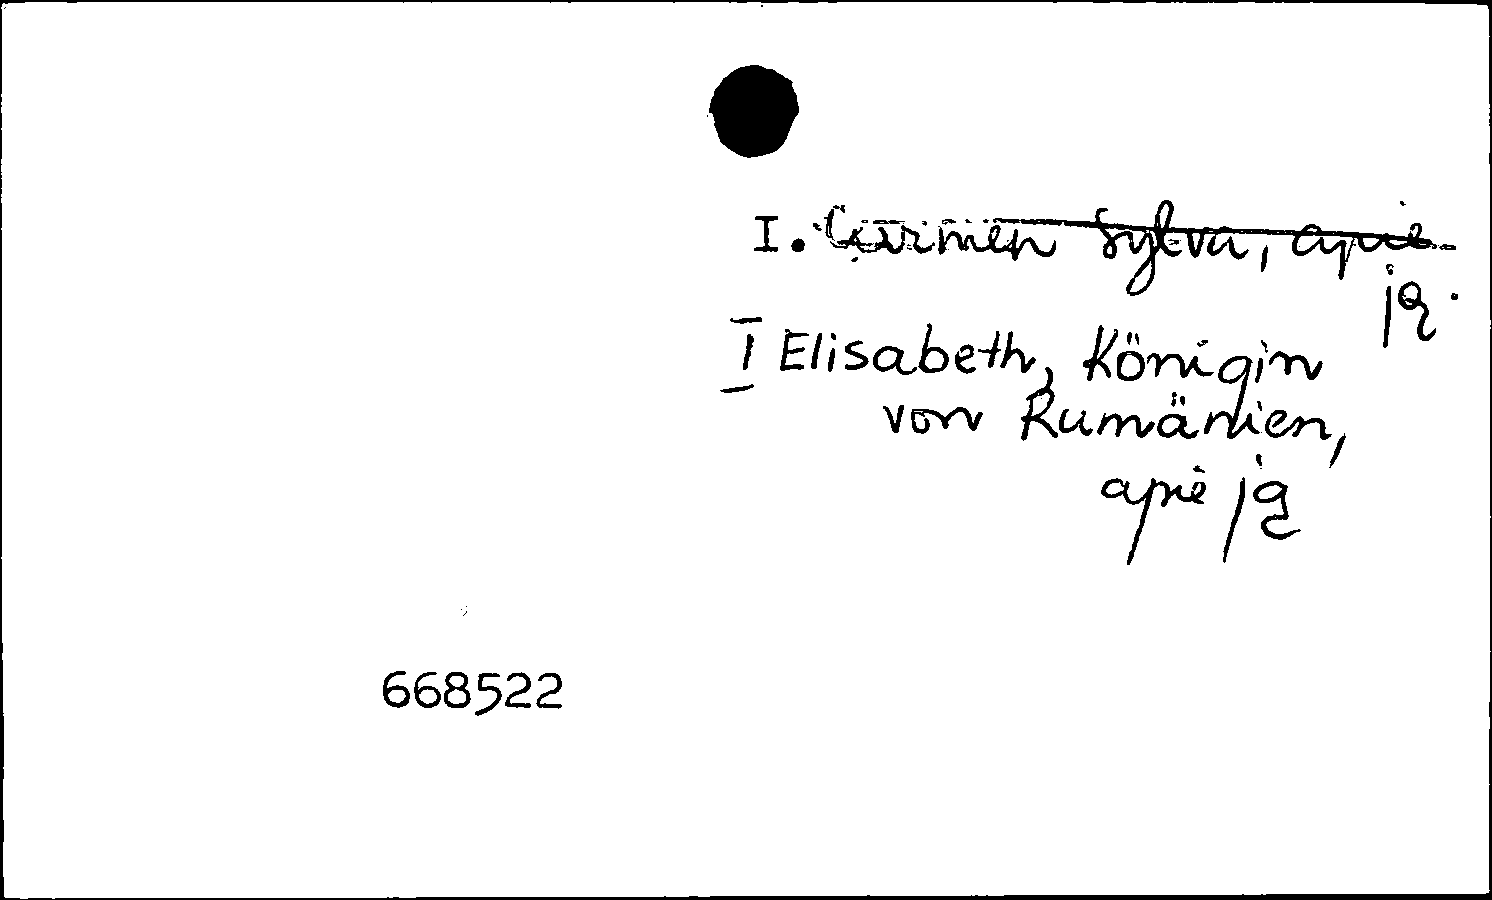 I. Carmen Sylva, apie
ją.
I Elisabeth, Königin
von Rumänien,
apie ją
668522